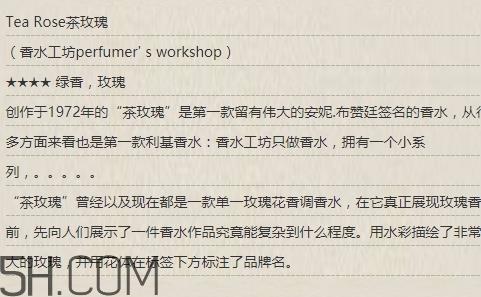 Tea Rose茶玫瑰
（香水工坊perfumer' s workshop）
★★★★ 绿香，玫瑰
创作于1972年的“茶玫瑰”是第一款留有伟大的安妮.布赞廷签名的香水，从很
多方面来看也是第一款利基香水：香水工坊只做香水，拥有一个小系
列，。。。。。
“茶玫瑰”曾经以及现在都是一款单一玫瑰花香调香水，在它真正展现玫瑰香
前，先向人们展示了一件香水作品究竟能复杂到什么程度。用水彩描绘了非常
大的玫瑰，并用花体在标签下方标注了品牌名。
5H.COM